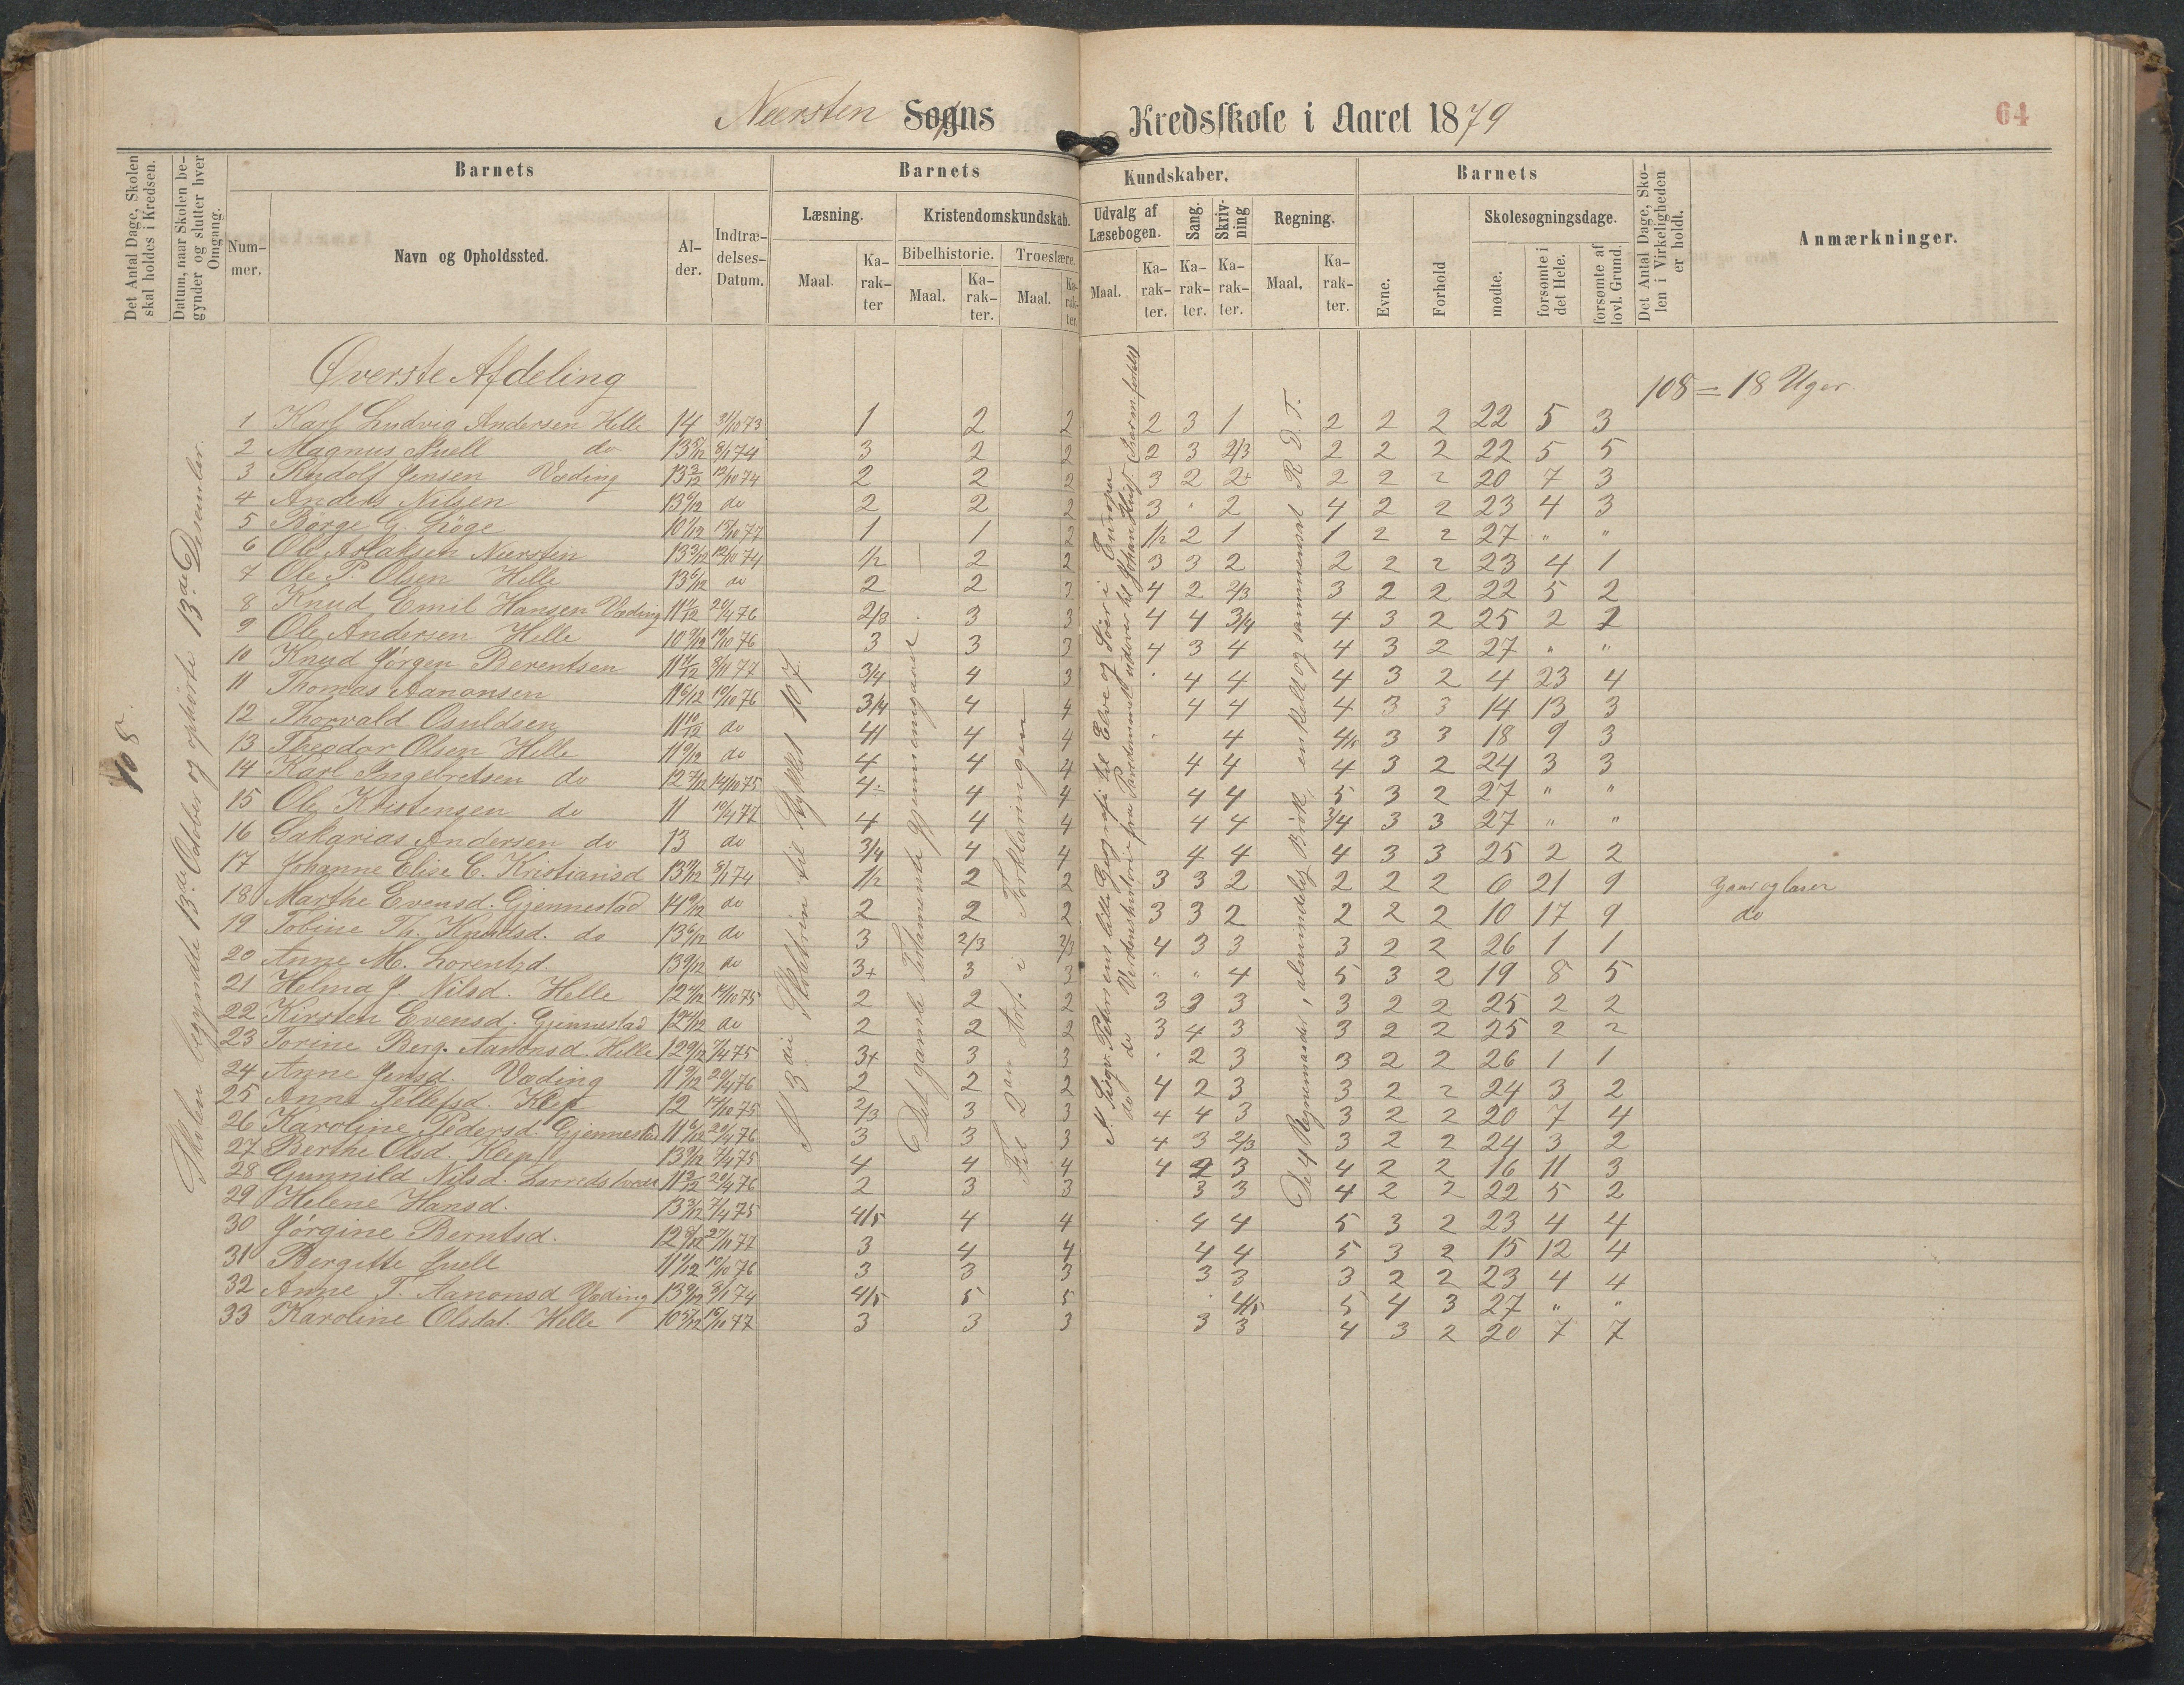 Nærsten Sogns Kredsskole i Aaret 1879
64
Det Antal Dage, Skolen skal holdes i Kredsen.
Datum, naar Skolen begynder og slutter hver Omgang.
Barnets
Nummer.
Navn og Opholdssted.
Alder.
Indtrædelses-Datum.
Barnets Kundskaber.
Læsning.
Maal.
Karakter
Kristendomskundskab.
Bibelhistorie.
Maal.
Karakter.
Troeslære.
Maal.
Karakter.
Udvalg af Læsebogen.
Maal.
Karakter.
Sang.
Karakter.
Skrivning
Karakter.
Regning.
Maal.
Karakter.
Barnets
Evne.
Forhold
Skolesøgningsdage.
mødte.
forsømte i det Hele.
forsømte af lovl. Grund.
Det Antal Dage, Skolen i Virkeligheden er holdt.
Anmærkninger.
108.
Skolen begyndte 13de October og ophörte 13de Desember.
Øverste Afdeling
108 = 18 Uger.
1 Karl Ludvig Andersen Helle 14 31/10 73 1 2 2 2 3 1 2 2 2 22 5 3
2 Magnus Juell do 13 5/12 8/1 74 3 2 2 2 3 2/3 2 2 2 22 5 5
3 Rudolf Jensen Væding 13 2/12 12/10 74 2 2 2 3 2 2+ 2 2 2 20 7 3
4 Anders Nilsen 13 6/12 do 2 2 2 3 " 2 4 2 2 23 4 3
5 Börge G. Löge 10 1/12 15/10 77 1 1 2 1/2 2 1 1 2 2 27 " "
6 Ole Aslaksen Nærsten 13 3/12 12/10 74 1/2 2 2 3 3 2 2 2 2 23 4 1
7 Ole P. Olsen Helle 13 6/12 do 2 2 3 4 2 2/3 3 2 2 22 5 2
8 Knud Emil Hansen Væding 11 11/12 20/4 76 2/3 3 3 4 4 3/4 4 3 2 25 2 2
9 Ole Andersen Helle 10 9/12 19/10 76 3 3 3 4 3 4 4 3 2 27 " "
10 Knud Jörgen Berentsen 11 11/12 8/11 77 3/4 4 3 " 4 4 4 3 2 4 23 4
11 Thomas Aanonsen 11 6/12 19/10 76 3/4 4 4 4 4 4 3 3 14 13 3
12 Thorvald Osuldsen 11 10/12 do 4 4 4 " 4 4/5 3 3 18 9 3
13 Theodor Olsen Helle 11 9/12 do 4 4 4 4 4 4 3 2 24 3 3
14 Karl Ingebretsen do 12 7/12 14/10 75 4- 4 4 4 4 5 3 2 27 " "
15 Ole Kristensen do 11 10/4 77 4 4 4 4 4 3/4 3 3 27 " "
16 Sakarias Andersen do 13 do 3/4 4 4 4 4 4 3 3 25 2 2
17 Johanne Elise C. Kristiansd 13 11/12 8/1 74 1/2 2 2 3 3 2 2 2 2 6 21 9 Gaar og læser
18 Marthe Evensd. Gjennestad 14 9/12 do 2 2 2 3 3 2 2 2 2 10 17 9 do
19 Tobine Th. Knudsd. do 13 6/12 do 3 2/3 2/3 4 3 3 3 2 2 26 1 1
20 Anne M. Lorentsd. 13 9/12 do 3+ 3 3 " " 4 5 3 2 19 8 5
21 Helma J. Nilsd. Helle 12 11/12 14/10 75 2 2 2 3 3 3 3 2 2 25 2 2
22 Kirsten Evensd. Gjennestad 12 11/12 do 2 2 2 3 4 3 3 2 2 25 2 2
23 Torine Berg. Aanonsd. Helle 12 9/12 7/4 75 3+ 3 3 " 2 3 3 2 2 26 1 1
24 Anne Jensd. Væding 11 9/12 20/4 76 2 2 2 4 2 3 3 2 2 24 3 2
25 Anne Tellefsd. Klep 12 14/10 75 2/3 3 3 4 4 3 3 2 2 20 7 4
26 Karoline Pedersd. Gjennestad 11 6/12 20/4 76 3 3 3 4 3 2/3 3 2 2 24 3 2
27 Berthe Olsd. Klep 13 9/12 7/4 75 4 4 4 4 2 3 4 2 2 16 11 3
28 Gunnild Nilsd. 11 3/12 20/4 76 2 3 3 3 3 4 2 2 22 5 2
29 Helene Hansd. 13 3/12 7/4 75 4/5 4 4 4 4 5 3 2 23 4 4
30 Jörgine Berntsd. 12 8/12 27/11 77 3 4 4 4 4 5 3 2 15 12 4
31 Bergitte Juell 11 1/12 19/10 76 3 3 3 3 3 3 2 2 23 4 4
32 Anne T. Aanonsd Væding 13 9/12 8/1 74 4/5 5 5 " 4/5 5 4 3 27 " "
33 Karoline Olsdat. Helle 10 5/12 16/10 77 3 3 3 3 3 4 3 2 20 7 7
til Stykket 107.
Det gamle Testamente gjennemgaaet
Til 2den Art. i Forklaringen
N. Sigv. Petersens lille Geografi til Elve og Søer i Europa
do do Verdenshistorie fra
De 4 Regnemaader, almindelig Brök, enkelt og sammensat R. D. T.